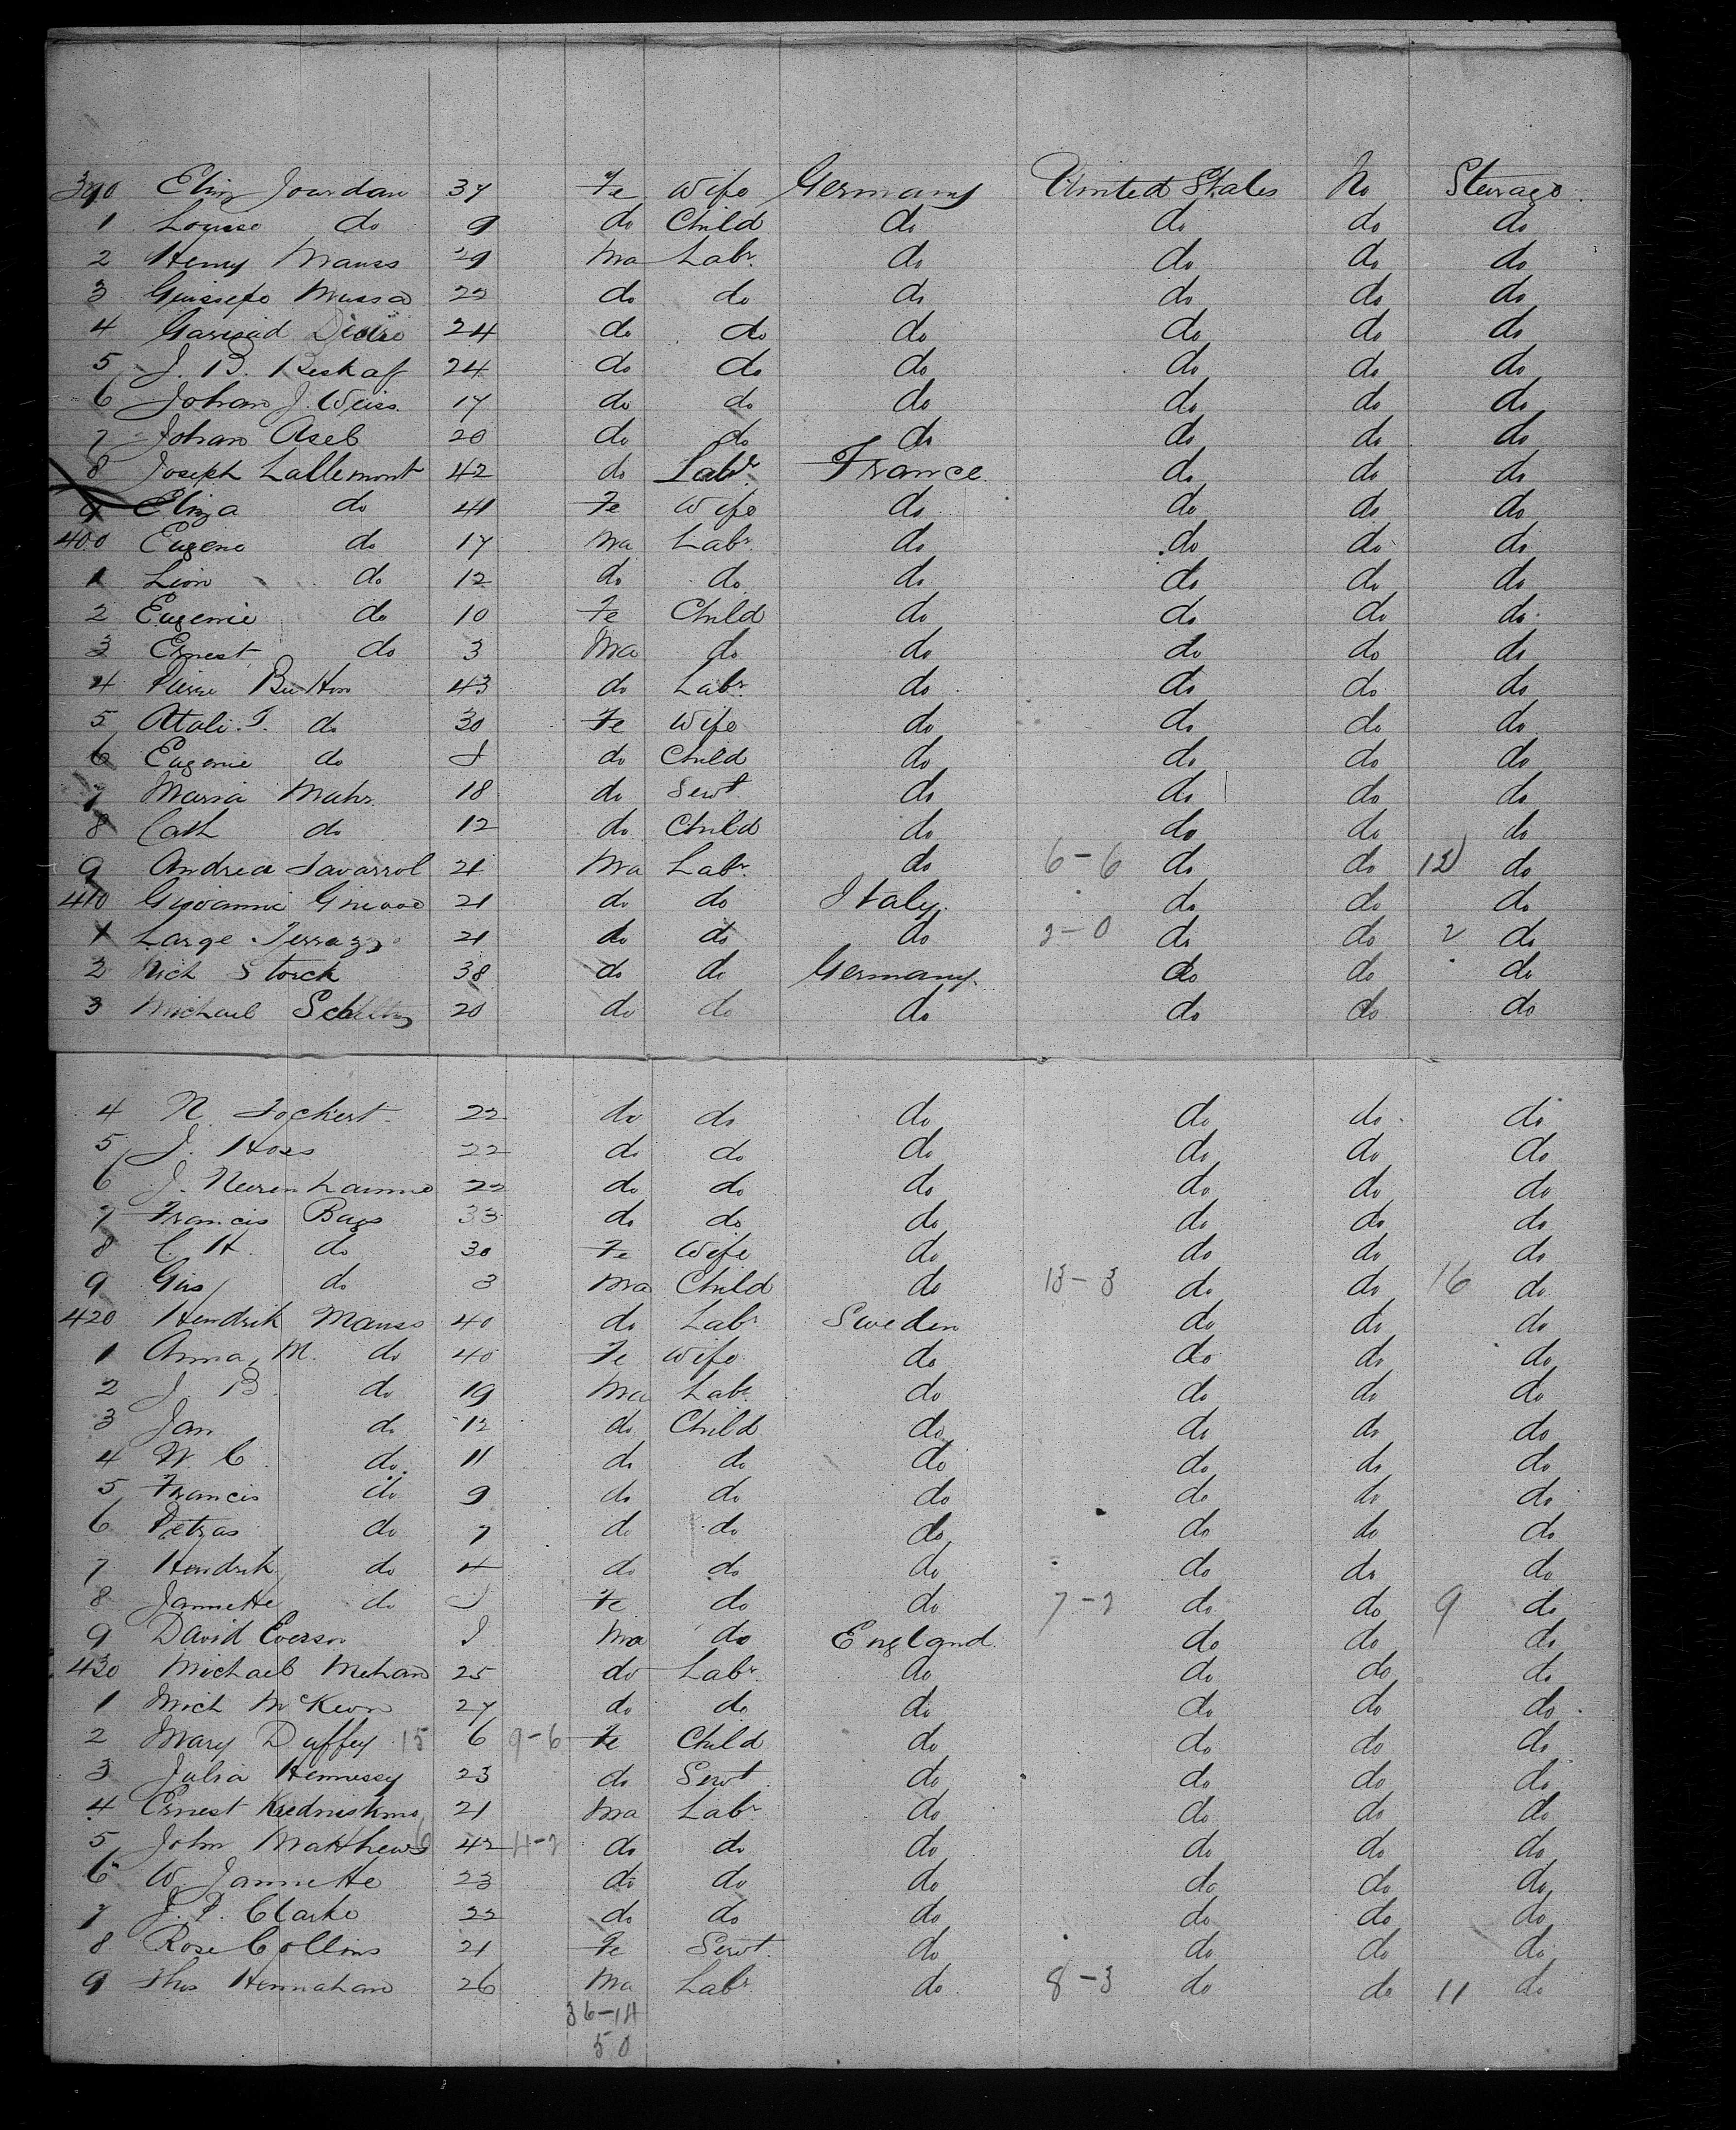 390 Eliz Jourdan 37 Fe Wife Germany United States No Steerage
1 Louise do 9 do Child do do do do
2 Henry Mauss 29 Ma Labr. do do do do
3 Guissefo Mussa 22 do do do do do do
4 24 do do do do do do
5 J. B. 24 do do do do do do
6 Johan J. Weiss. 17 do do do do do do
7 Johan Aseb 20 do do do do do do
8 Joseph Lallemont 42 do Labr. France do do do
9 Eliza do 41 Fe Wife do do do do
400 Eugene do 17 Ma Labr. do do do do
1 Lion do 12 do do do do do do
2 Eugenie do 10 Fe Child do do do do
3 Ernest do 3 Ma do do do do do
4 Pierre Button 43 do Labr. do do do do
5 Atali. T. do 30 Fe Wife do do do do
6 Eugenie do do Child do do do do
7 Maria Mahr. 18 do Servt do do do do
8 Cath do 12 do Child do do do do
9 Andrea Tavarrol 21 Ma Labr. do 6-6 do do 12 do
410 Giovanni 21 do do Italy. do do do
1 Large Terrazzo 21 do do do 2-0 do do 2 do
2 Nich Storck 38 do do Germany. do do do
3 Michael 20 do do do do do do
4 N. Tockert 22 do do do do do do
5 J. Hoss 22 do do do do do do
6 J. 22 do do do do do do
7 Francis Bags 33 do do do do do do
8 C. H. do 30 Fe Wife do do do do
9 Gus do 3 Ma Child do 13-3 do do 16 do
420 Hendrik Mauss 40 do Labr Sweden do do do
1 Anna, M. do 40 Fe Wife do do do do
2 J. B. do 19 Ma Labr do do do do
3 Jan do 12 do Child do do do do
4 W. C. do 11 do do do do do do
5 Francis do 9 do do do do do do
6 Petras do 7 do do do do do do
7 Hendrik do 4 do do do do do do
8 Jannette do Fe do do 7-2 do do 9 do
9 David Everson Ma do England. do do do
430 Michael Mehan 25 do Labr do do do do
1 Mich McKeon 27 do do do do do do
2 Mary Duffey 15 6 9-6 Fe Child do do do do
3 Julia Hennessy 23 do Servt do do do do
4 Ernest 21 Ma Labr do do do do
5 John Matthews 6 42 4-2 do do do do do do
6 W. Jannette 23 do do do do do do
7 J. P. Clarke 22 do do do do do do
8 Rose Collins 21 Fe Servt. do do do do
9 Thos Hennahan 26 Ma Labr do 8-3 do do 11 do
36-14
50